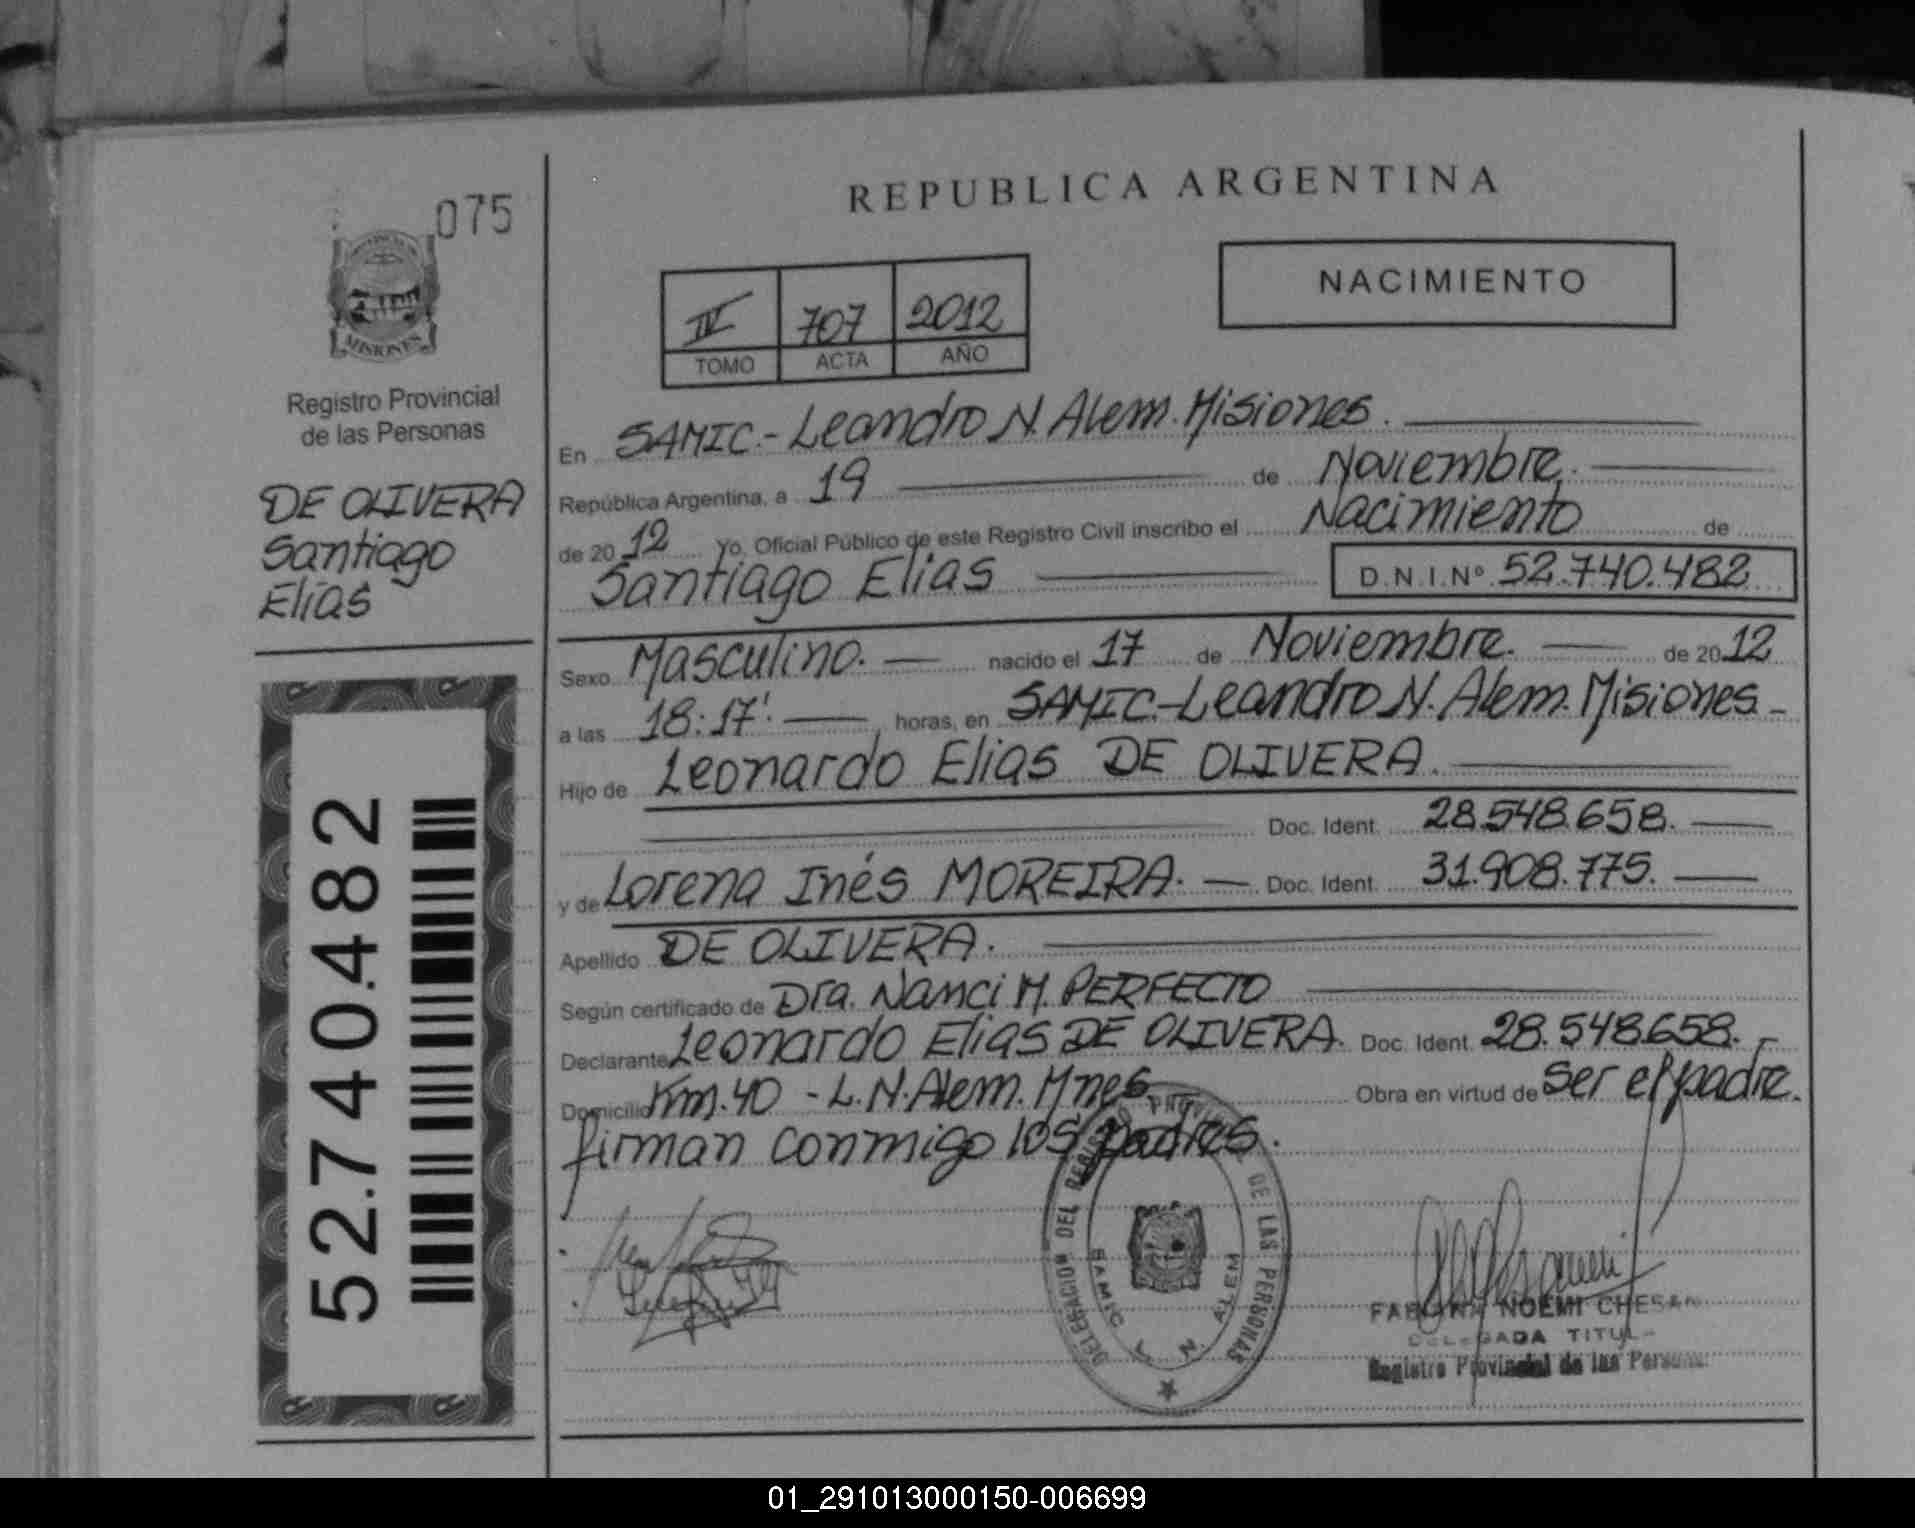 075
PROVINCIA DE
MISIONES
Registro Provincial
de las Personas
DE OLIVERA
Santiago
Elías
52.740.482
REPUBLICA ARGENTINA
NACIMIENTO
IV 707 2012
TOMO ACTA AÑO
En SAMIC.- Leandro N. Alem. Misiones.
República Argentina, a 19 de Noviembre.
de 2012 Yo, Oficial Público de este Registro Civil inscribo el Nacimiento de
Santiago Elías D.N.I.Nº 52.740.482
Sexo Masculino. nacido el 17 de Noviembre. de 2012
a las 18:17'. horas, en SAMIC.-Leandro N. Alem. Misiones.-
Hijo de Leonardo Elias DE OLIVERA.
Doc. Ident. 28.548.658.
y de Lorena Inés MOREIRA. Doc. Ident. 31.908.775.
Apellido DE OLIVERA.
Según certificado de Dra. Nanci M. PERFECTO
Declarante Leonardo Elias DE OLIVERA. Doc. Ident. 28.548.658.-
Domicilio Km. 40 - L.N. Alem. Mnes. Obra en virtud de ser el padre.
firman conmigo los padres.
DELEGACION DEL REGISTRO PROVINCIAL DE LAS PERSONAS
SAMIC N ALEM
NOEMI
DELEGADA TITUL
Registro Provincial de las Personas
01_291013000150-006699